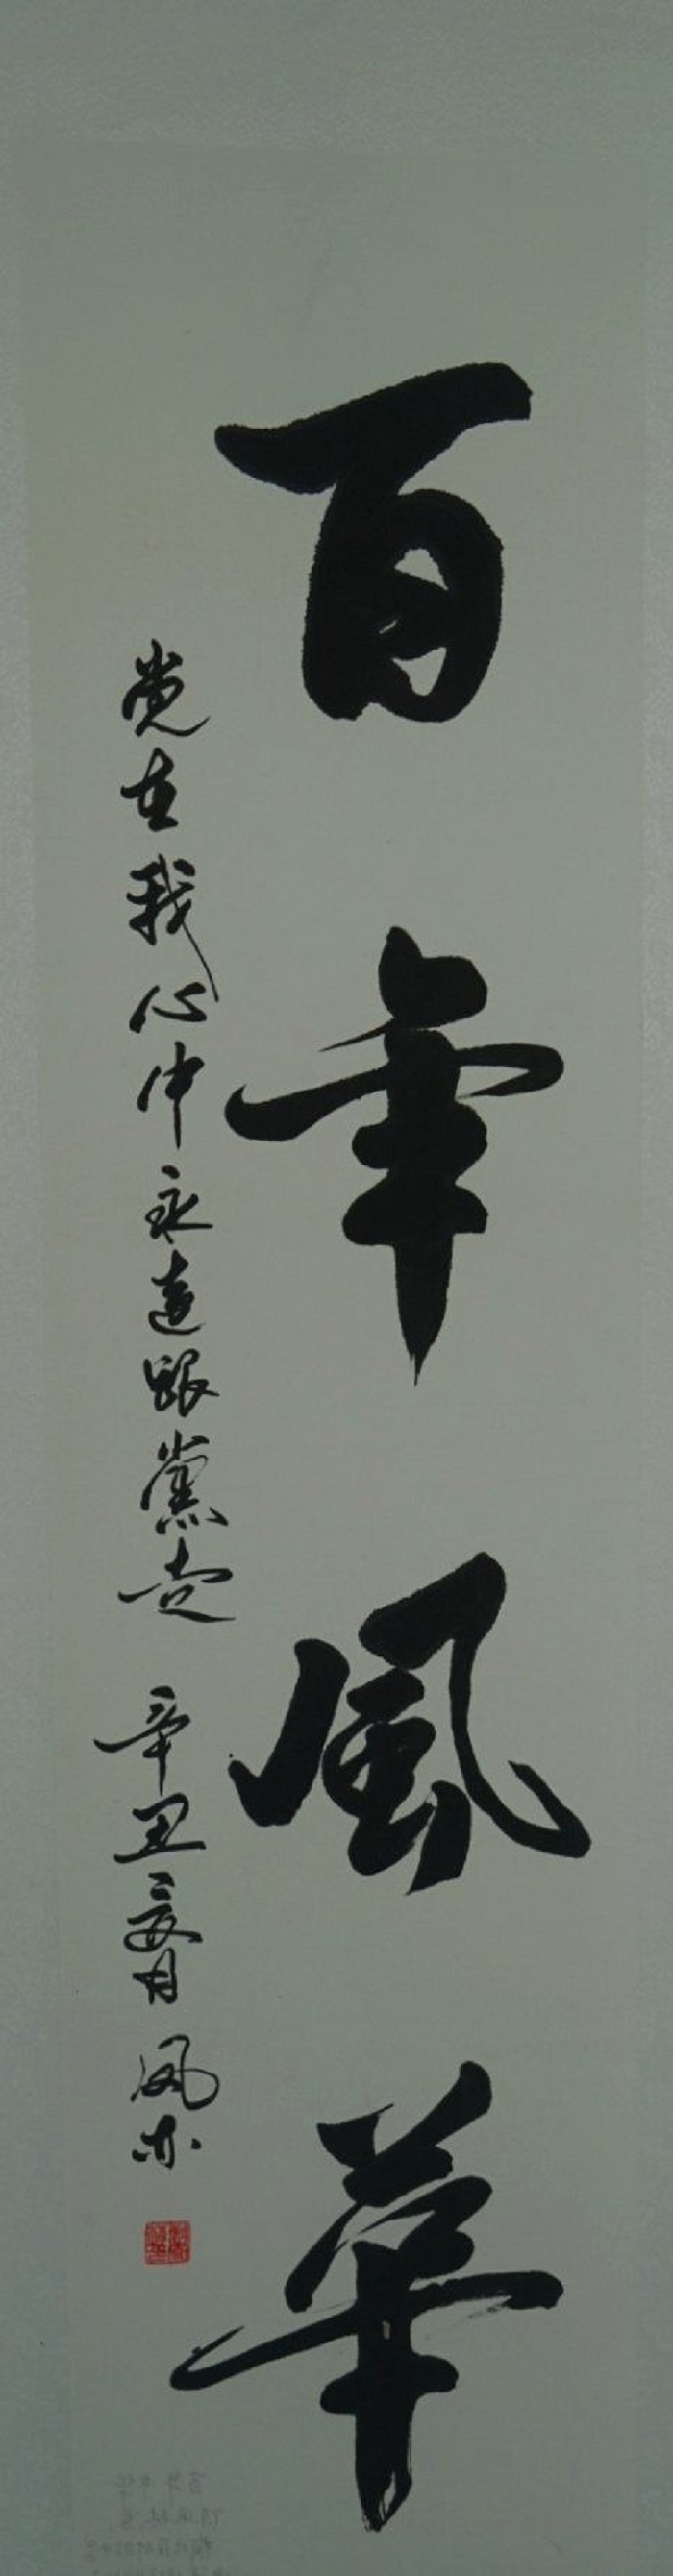 百年風華
党在我心中永遠跟黨走 辛丑夏月 凤亦